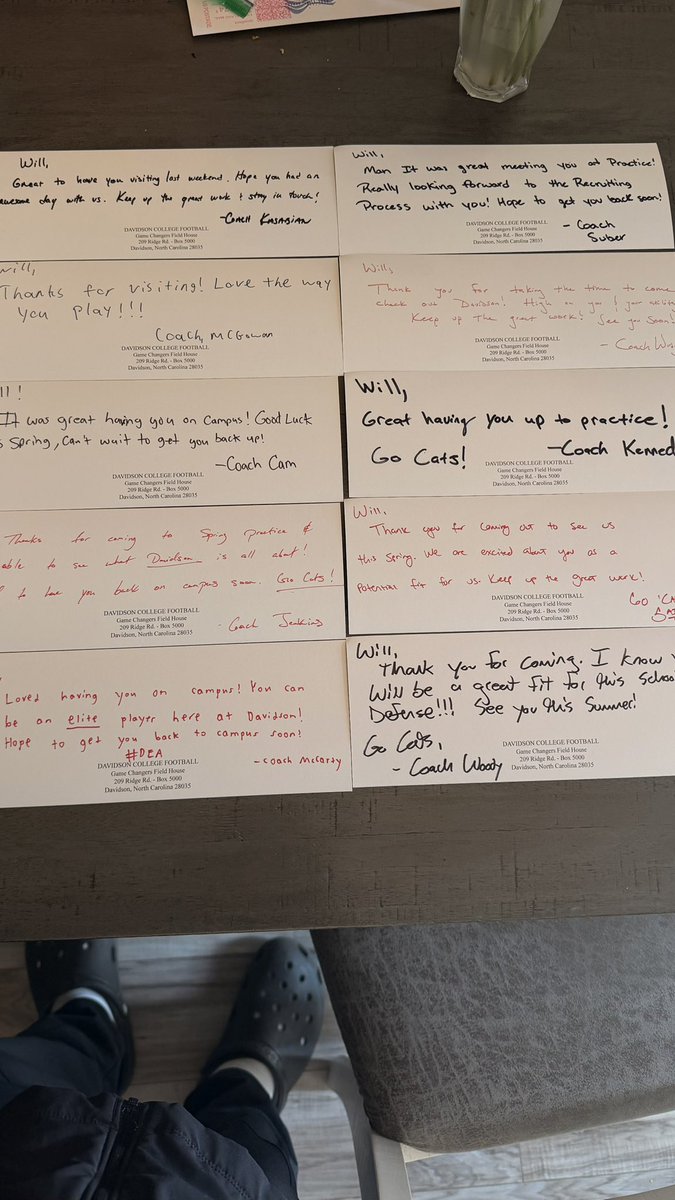 Will,
Great to have you visiting last weekend. Hope you had an
awesome day with us. Keep up the great work & stay in touch!
-Coach Kasabian
DAVIDSON COLLEGE FOOTBALL
Game Changers Field House
209 Ridge Rd. - Box 5000
Davidson, North Carolina 28035
Will,
Man It was great meeting you at Practice!
Really looking forward to the Recruiting
Process with you! Hope to get you back soon!
- Coach
Suber
DAVIDSON COLLEGE FOOTBALL
Game Changers Field House
209 Ridge Rd. - Box 5000
Davidson, North Carolina 28035
Will,
Thanks for visiting! Love the way
you play!!!
Coach, McGowan
DAVIDSON COLLEGE FOOTBALL
Game Changers Field House
209 Ridge Rd. - Box 5000
Davidson, North Carolina 28035
Will,
Thank you for taking the time to come
check out Davidson! High on you & your
Keep up the great work! See you soon!
- Coach
DAVIDSON COLLEGE FOOTBALL
Game Changers Field House
209 Ridge Rd. - Box 5000
Davidson, North Carolina 28035
ll!
It was great having you on campus! Good Luck
s Spring, can't wait to get you back up!
-Coach Cam
DAVIDSON COLLEGE FOOTBALL
Game Changers Field House
209 Ridge Rd. - Box 5000
Davidson, North Carolina 28035
Will,
Great having you up to practice!
Go Cats!
-Coach Kenned
DAVIDSON COLLEGE FOOTBALL
Game Changers Field House
209 Ridge Rd. - Box 5000
Davidson, North Carolina 28035
Thanks for coming to Spring practice &
able to see what Davidson is all about!
to have you back on campus soon. Go Cats!
- Coach Jenkins
DAVIDSON COLLEGE FOOTBALL
Game Changers Field House
209 Ridge Rd. - Box 5000
Davidson, North Carolina 28035
Will,
Thank you for coming out to see us
this spring. We are excited about you as a
potential fit for us. Keep up the great work!
GO 'CA
DAVIDSON COLLEGE FOOTBALL
Game Changers Field House
209 Ridge Rd. - Box 5000
Davidson, North Carolina 28035
Loved having you on campus! You can
be an elite player here at Davidson!
Hope to get you back to campus soon!
#DEA
-coach McCarty
DAVIDSON COLLEGE FOOTBALL
Game Changers Field House
209 Ridge Rd. - Box 5000
Davidson, North Carolina 28035
Will,
Thank you for coming. I know y
will be a great fit for this school
Defense!!! See you this summer!
Go Cats,
- Coach Woody
DAVIDSON COLLEGE FOOTBALL
Game Changers Field House
209 Ridge Rd. - Box 5000
Davidson, North Carolina 28035